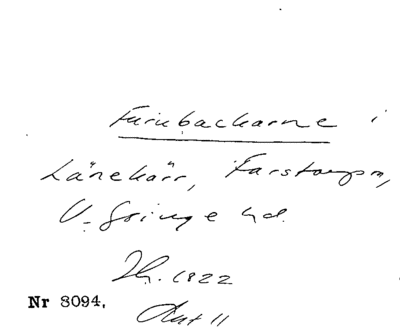 Furubackarne i
Länekärr, Farstorps n,
V. Göinge hd.
Th. 1822
Nr 8094.
Akt 11